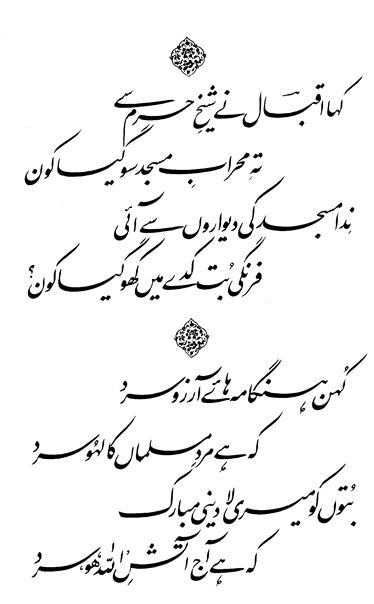 کہا اقبالؔ نے شیخِ حرم سے
تہِ محرابِ مسجد سو گیا کون
نِدا مسجد کی دیواروں سے آئی
فرنگی بُت کدے میں کھو گیا کون؟
کُہن ہنگامہ ہائے آرزو سرد
کہ ہے مردِ مسلماں کا لہُو سرد
بُتوں کو میری لادینی مبارک
کہ ہے آج آتشِ اَللہ ھُو، سرد